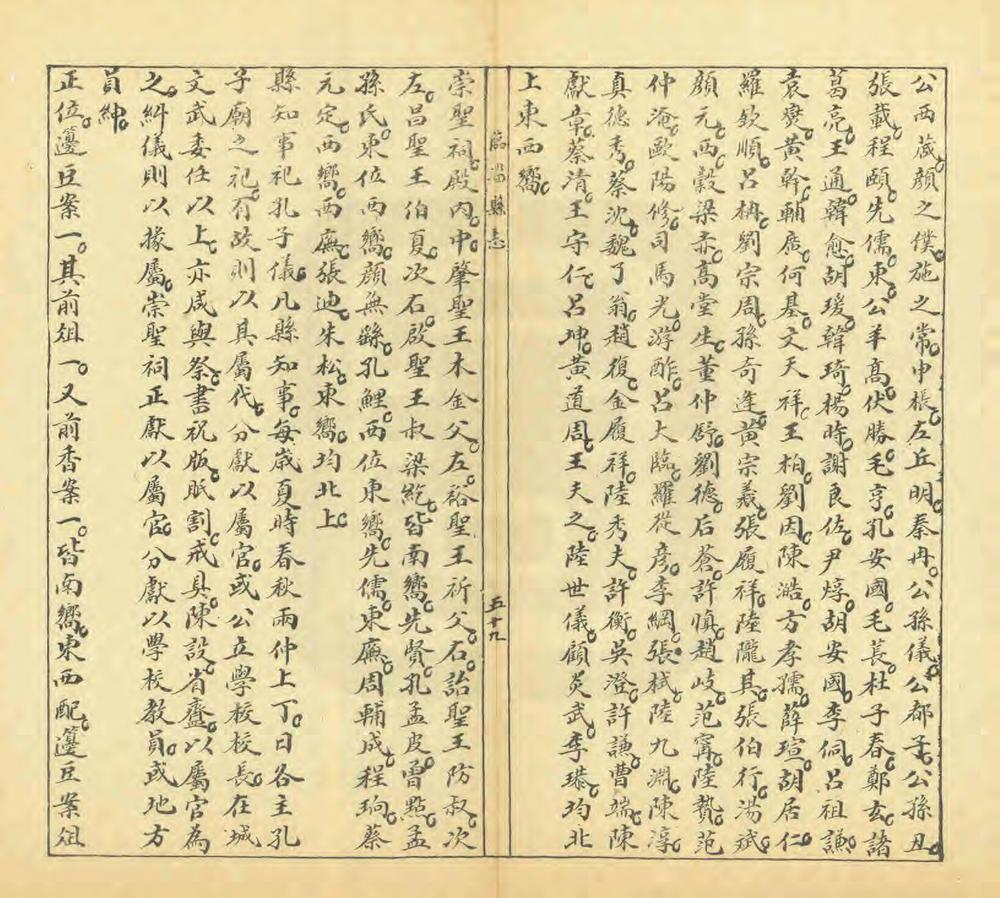 公西蒧。顏之僕。施之常。申棖。左丘明。秦冉。公孫儀。公都子。公孫丑。
張載。程頤。先儒東。公羊高。伏勝。毛亨。孔安國。毛萇。杜子春。鄭玄。諸
葛亮。王通。韓愈。胡瑗。韓琦。楊時。謝良佐。尹焞。胡安國。李侗。呂祖謙。
袁燮。黃幹。輔廣。何基。文天祥。王柏。劉因。陳澔。方孝孺。薛瑄。胡居仁。
羅欽順。呂柟。劉宗周。孫奇逢。黃宗羲。張履祥。陸隴其。張伯行。湯斌。
顏元。西。穀梁赤。高堂生。董仲舒。劉德。后蒼。許慎。趙岐。范甯。陸贄。范
仲淹。歐陽修。司馬光。游酢。呂大臨。羅從彥。李綱。張栻。陸九淵。陳淳。
真德秀。蔡沈。魏了翁。趙復。金履祥。陸秀夫。許衡。吳澄。許謙。曹端。陳
獻章。蔡清。王守仁。呂坤。黃道周。王夫之。陸世儀。顧炎武。李塨。均北
上東西嚮。
臨淄縣志
五十九
崇聖祠。殿內。中肇聖王木金父。左。裕聖王祈父。右。詒聖王防叔。次
左。昌聖王伯夏。次右。啟聖王叔梁紇。皆南嚮。先賢。孔孟皮。曾點。孟
孫氏。東位西嚮。顏無繇。孔鯉。西位東嚮。先儒。東廡。周輔成。程珦。蔡
元定。西嚮。西廡。張迪。朱松。東嚮。均北上。
縣知事祀孔子儀。凡縣知事。每歲夏時春秋兩仲上丁。日各主孔
子廟之祀。有故則以其屬代。分獻以屬官。或公立學校校長。在城
文武委任以上。亦咸與祭。書祝版。眂割。戒具。陳設。省齍。以屬官為
之。糾儀則以掾屬。崇聖祠正獻以屬官。分獻以學校教員。或地方
員紳。
正位。籩豆案一。其前俎一。又前香案一。皆南嚮。東西配。籩豆案俎